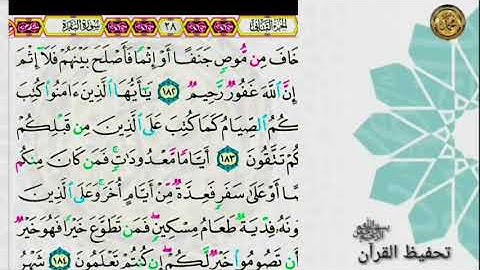 الجزء الثاني ٢٨ سورة البقرة
خَافَ مِن مُّوصٍ جَنَفًا أَوْ إِثْمًا فَأَصْلَحَ بَيْنَهُمْ فَلَآ إِثْمَ
إِنَّ ٱللَّهَ غَفُورٌ رَّحِيمٌ ١٨٢ يَـٰٓأَيُّهَا ٱلَّذِينَ ءَامَنُوا۟ كُتِبَ
كُمُ ٱلصِّيَامُ كَمَا كُتِبَ عَلَى ٱلَّذِينَ مِن قَبْلِكُمْ
كُمْ تَتَّقُونَ ١٨٣ أَيَّامًا مَّعْدُودَٰتٍ فَمَن كَانَ مِنكُم
مًا أَوْ عَلَىٰ سَفَرٍ فَعِدَّةٌ مِّنْ أَيَّامٍ أُخَرَ وَعَلَى ٱلَّذِينَ
ونَهُۥ فِدْيَةٌ طَعَامُ مِسْكِينٍ فَمَن تَطَوَّعَ خَيْرًا فَهُوَ خَيْرٌ
أَن تَصُومُوا۟ خَيْرٌ لَّكُمْ إِن كُنتُمْ تَعْلَمُونَ ١٨٤ شَهْرُ
تحفيظ القرآن